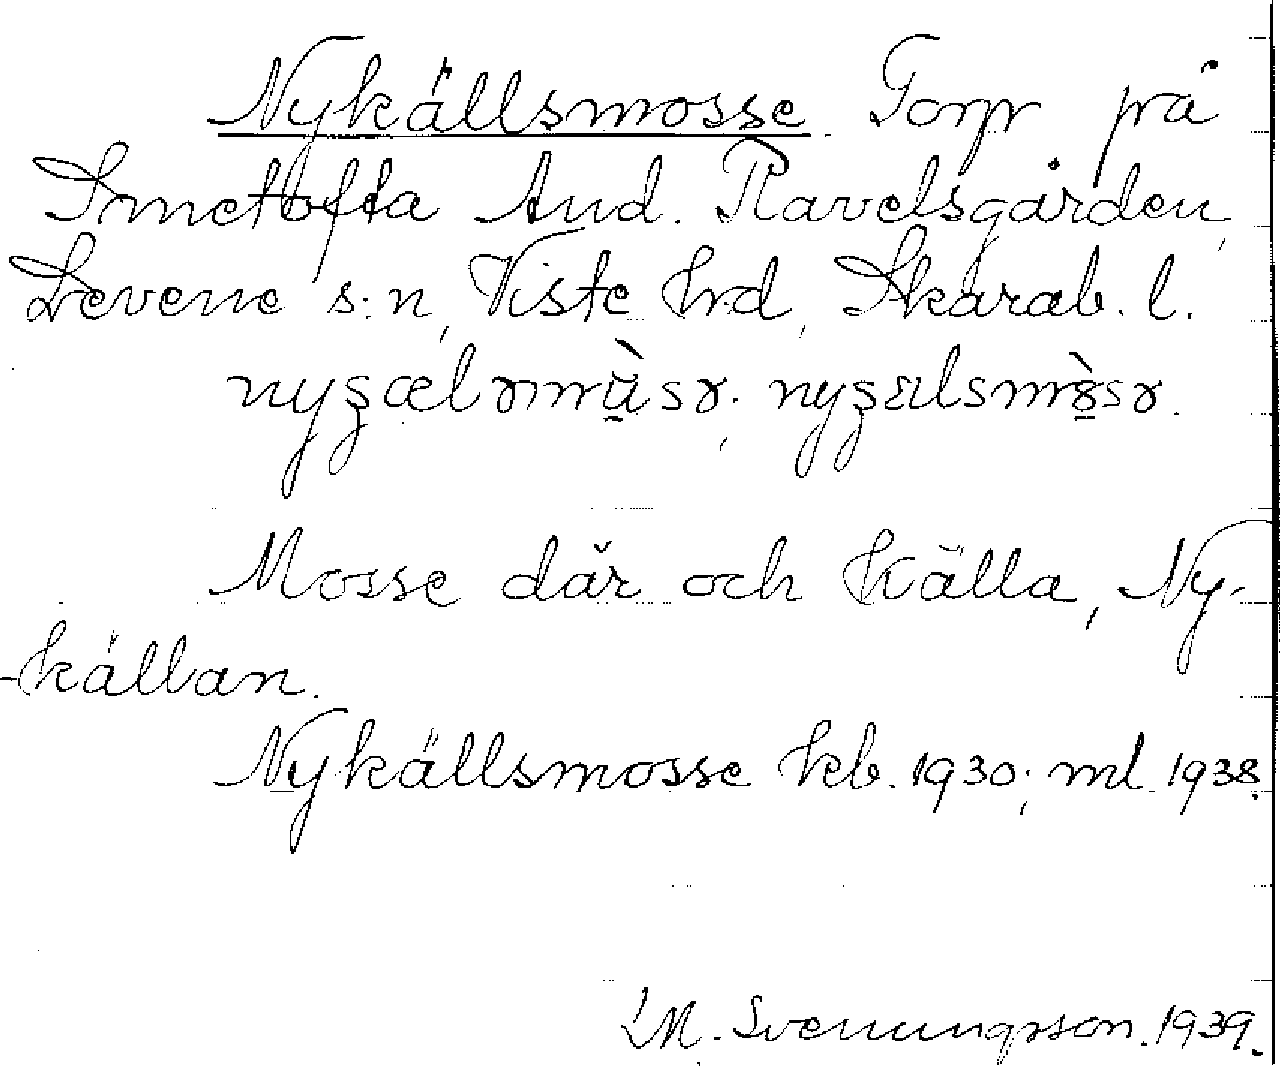 Nykällsmosse Torp på
Smetofta And. Ravelsgården,
Levene s:n, Viste hrd, Skarab. l.
Mosse där och källa, Ny-
-källan.
Nykällsmosse kb. 1930; ml 1938.
M. Svenungsson. 1939.